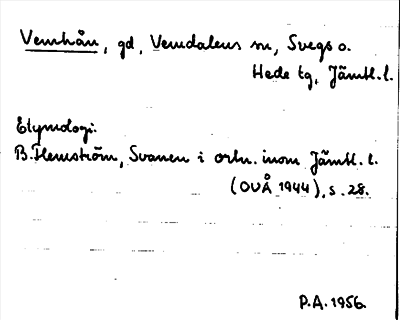 Vemhån, gd, Vemdalens sn, Svegs o.
Hede tg, Jämtl. l.
Etymologi:
B. Flemström, Svanen i ortn. inom Jämtl. l.
(OUÅ 1944), s. 28.
P.A. 1956.